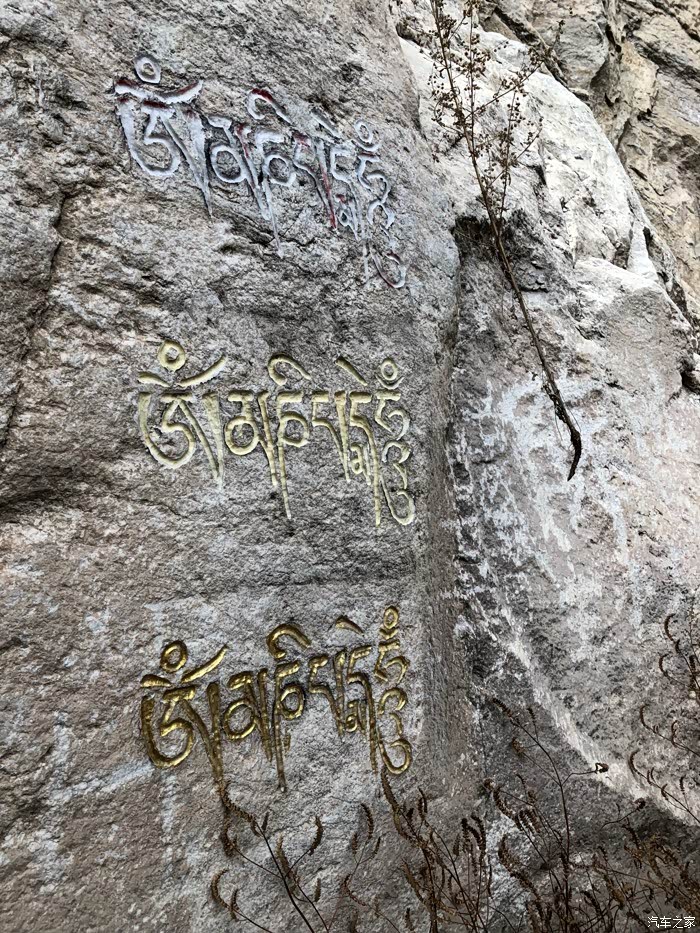 ཨོཾ་མ་ཎི་པདྨེ་ཧཱུྃ
ཨོཾ་མ་ཎི་པདྨེ་ཧཱུྃ
ཨོཾ་མ་ཎི་པདྨེ་ཧཱུྃ
汽车之家